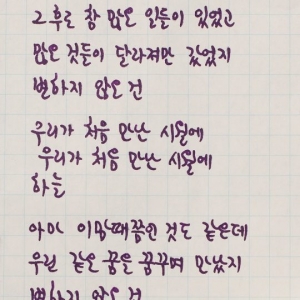 그 후로 참 많은 일들이 있었고
많은 것들이 달라져만 갔었지
변하지 않은 건
우리가 처음 만난 시월에
우리가 처음 만난 시월에
하늘
아마 이맘때쯤인 것도 같은데
우린 같은 꿈을 꿈꾸며 만났지
변하지 않은 건